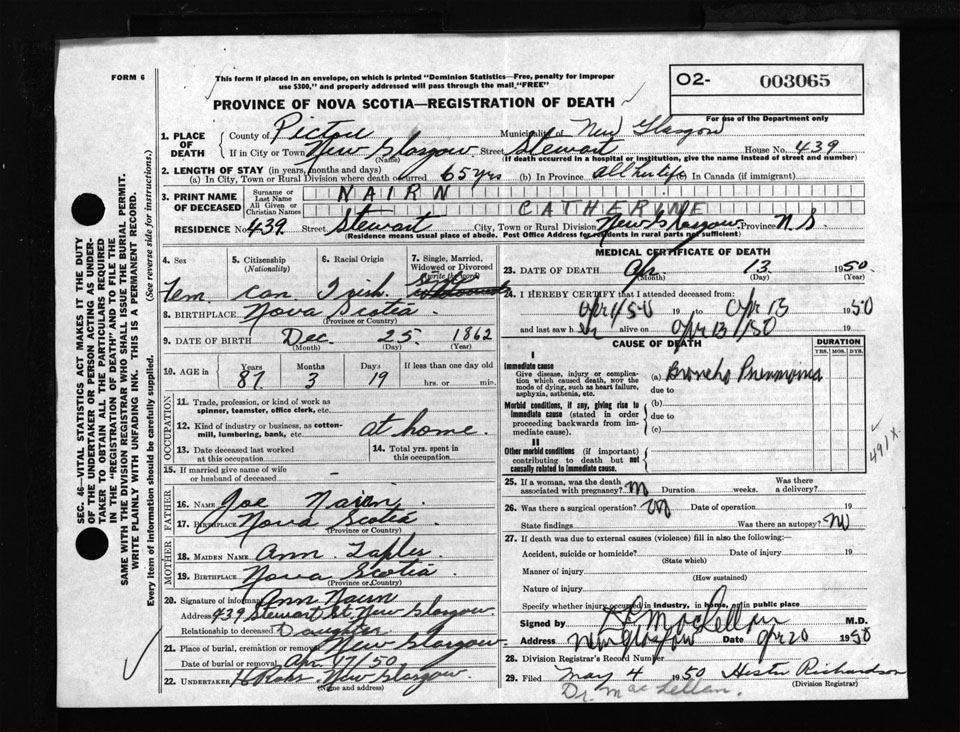 FORM 6
This form if placed in an envelope, on which is printed "Dominion Statistics—Free, penalty for improper
use $300," and properly addressed will pass through the mail "FREE"
O2- 003065
For use of the Department only
PROVINCE OF NOVA SCOTIA—REGISTRATION OF DEATH
1. PLACE OF DEATH County of Pictou Municipality of New Glasgow
If in City or Town New Glasgow (Name) Street Stewart House No. 439
(If death occurred in a hospital or institution, give the name instead of street and number)
2. LENGTH OF STAY (in years, months and days)
(a) In City, Town or Rural Division where death occurred 65 yrs (b) In Province all her life In Canada (if immigrant)
3. PRINT NAME OF DECEASED Surname or Last Name NAIRN
All Given or Christian Names CATHERINE
RESIDENCE No. 439 Street Stewart City, Town or Rural Division New Glasgow Province N S
(Residence means usual place of abode. Post Office Address for residents in rural parts not sufficient)
4. Sex 5. Citizenship (Nationality) 6. Racial Origin 7. Single, Married, Widowed or Divorced (write the word)
Fem. can. Irish
8. BIRTHPLACE Nova Scotia. (Province or Country)
9. DATE OF BIRTH Dec. (Month) 25. (Day) 1862 (Year)
10. AGE in Years 87 Months 3 Days 19 If less than one day old hrs. or min.
OCCUPATION
11. Trade, profession, or kind of work as spinner, teamster, office clerk, etc.
12. Kind of industry or business, as cotton-mill, lumbering, bank, etc. at home.
13. Date deceased last worked at this occupation 14. Total yrs. spent in this occupation
15. If married give name of wife or husband of deceased -
FATHER
16. NAME Joe Nairn.
17. BIRTHPLACE Nova Scotia (Province or Country)
MOTHER
18. MAIDEN NAME Ann
19. BIRTHPLACE Nova Scotia. (Province or Country)
20. Signature of informant Ann Nairn
Address 439 Stewart St, New Glasgow
Relationship to deceased Daughter
21. Place of burial, cremation or removal New Glasgow
Date of burial or removal Apr. 17/50
22. UNDERTAKER New Glasgow.
(Name and address)
MEDICAL CERTIFICATE OF DEATH
23. DATE OF DEATH Apr. (Month) 13 (Day) 1950. (Year)
24. I HEREBY CERTIFY that I attended deceased from:
19 to Apr 13 1950
and last saw her alive on Apr 13/50 19
CAUSE OF DEATH DURATION YRS. MOS. DYS.
I
Immediate cause
Give disease, injury or complication which caused death, NOT the mode of dying, such as heart failure, asphyxia, asthenia, etc.
(a) Broncho Pneumonia
due to
Morbid conditions, if any, giving rise to immediate cause (stated in order proceeding backwards from immediate cause).
(b)
due to
(c)
II
Other morbid conditions (if important) contributing to death but not causally related to immediate cause.
491X.
25. If a woman, was the death associated with pregnancy? Duration weeks. Was there a delivery?
26. Was there a surgical operation? Date of operation 19
State findings Was there an autopsy?
27. If death was due to external causes (violence) fill in also the following:
Accident, suicide or homicide? (State which) Date of injury 19
Manner of injury (How sustained)
Nature of injury
Specify whether injury occurred in industry, in home, or in public place
Signed by MacLellan M.D.
Address New Glasgow Date Apr 20 1950
28. Division Registrar's Record Number
29. Filed May 4 1950 Hester Richardson
(Division Registrar)
Dr. MacLellan.
SEC. 46—VITAL STATISTICS ACT MAKES IT THE DUTY
OF THE UNDERTAKER OR PERSON ACTING AS UNDER-
TAKER TO OBTAIN ALL THE PARTICULARS REQUIRED
IN THE "REGISTRATION OF DEATH" AND TO FILE THE
SAME WITH THE DIVISION REGISTRAR WHO SHALL ISSUE THE BURIAL PERMIT.
WRITE PLAINLY WITH UNFADING INK. THIS IS A PERMANENT RECORD.
Every item of information should be carefully supplied. (See reverse side for instructions.)